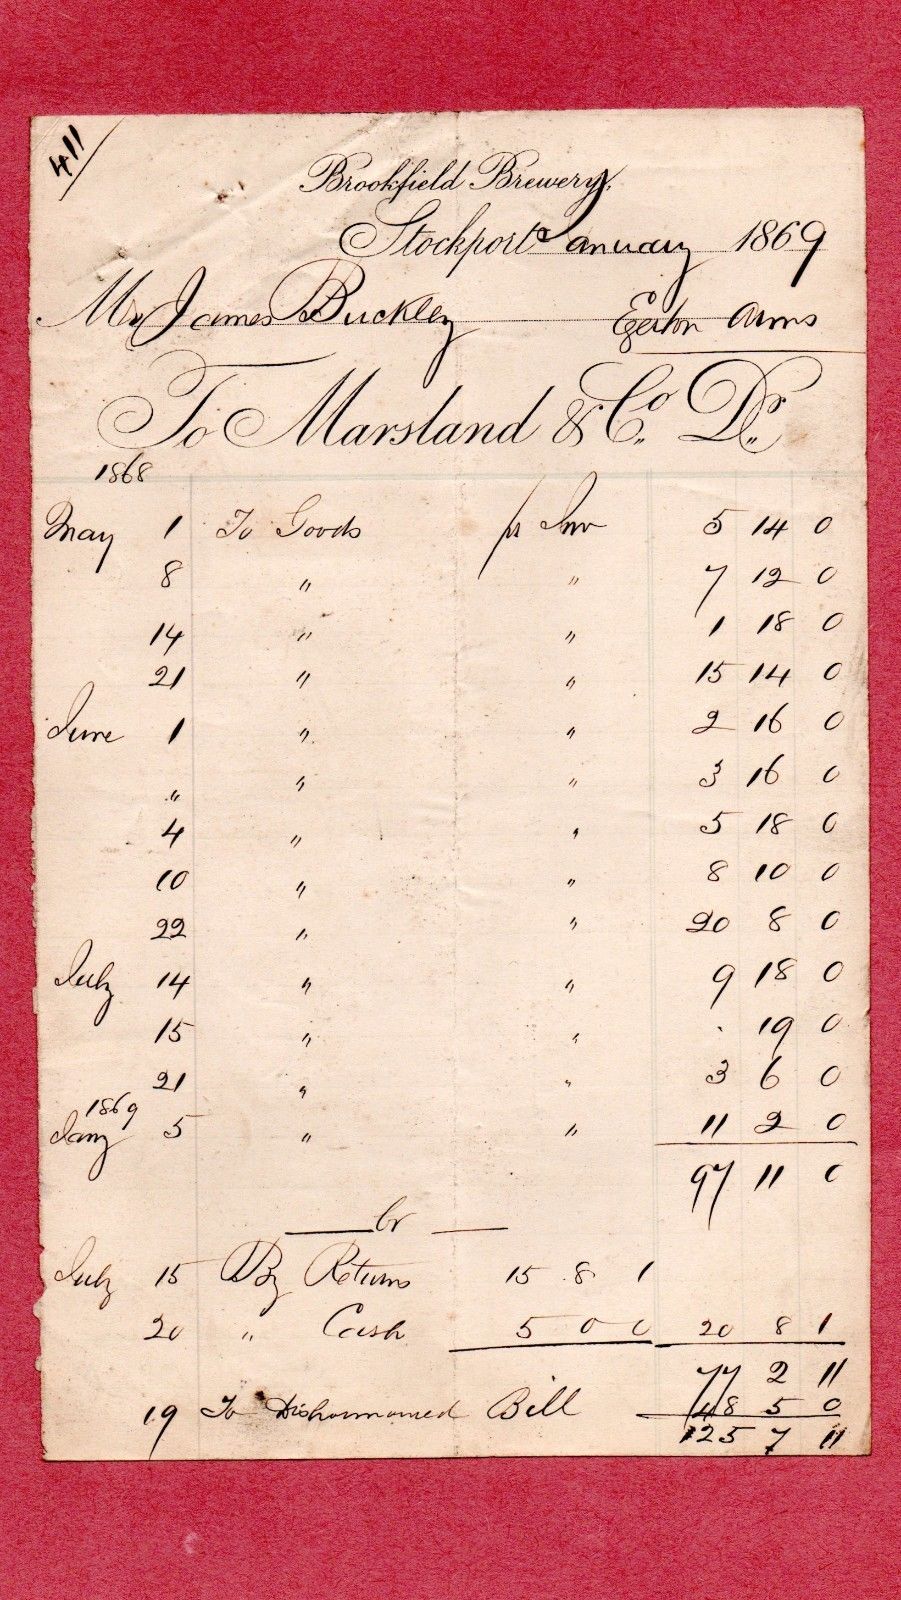 411/
Brookfield Brewery,
Stockport January 1869
Mr James Buckley Egerton Arms
To Marsland & Co. Dr.
1868
May 1 To Goods pr Inv 5 14 0
8 " " 7 12 0
14 " " 1 18 0
21 " " 15 14 0
June 1 " " 2 16 0
" " " 3 16 0
4 " " 5 18 0
10 " " 8 10 0
22 " " 20 8 0
July 14 " " 9 18 0
15 " " . 19 0
21 " " 3 6 0
1869
Jany 5 " " 11 2 0
97 11 0
Cr
July 15 By Returns 15 8 1
20 " Cash 5 0 0 20 8 1
77 2 11
19 To Dishonnoured Bill 48 5 0
125 7 11